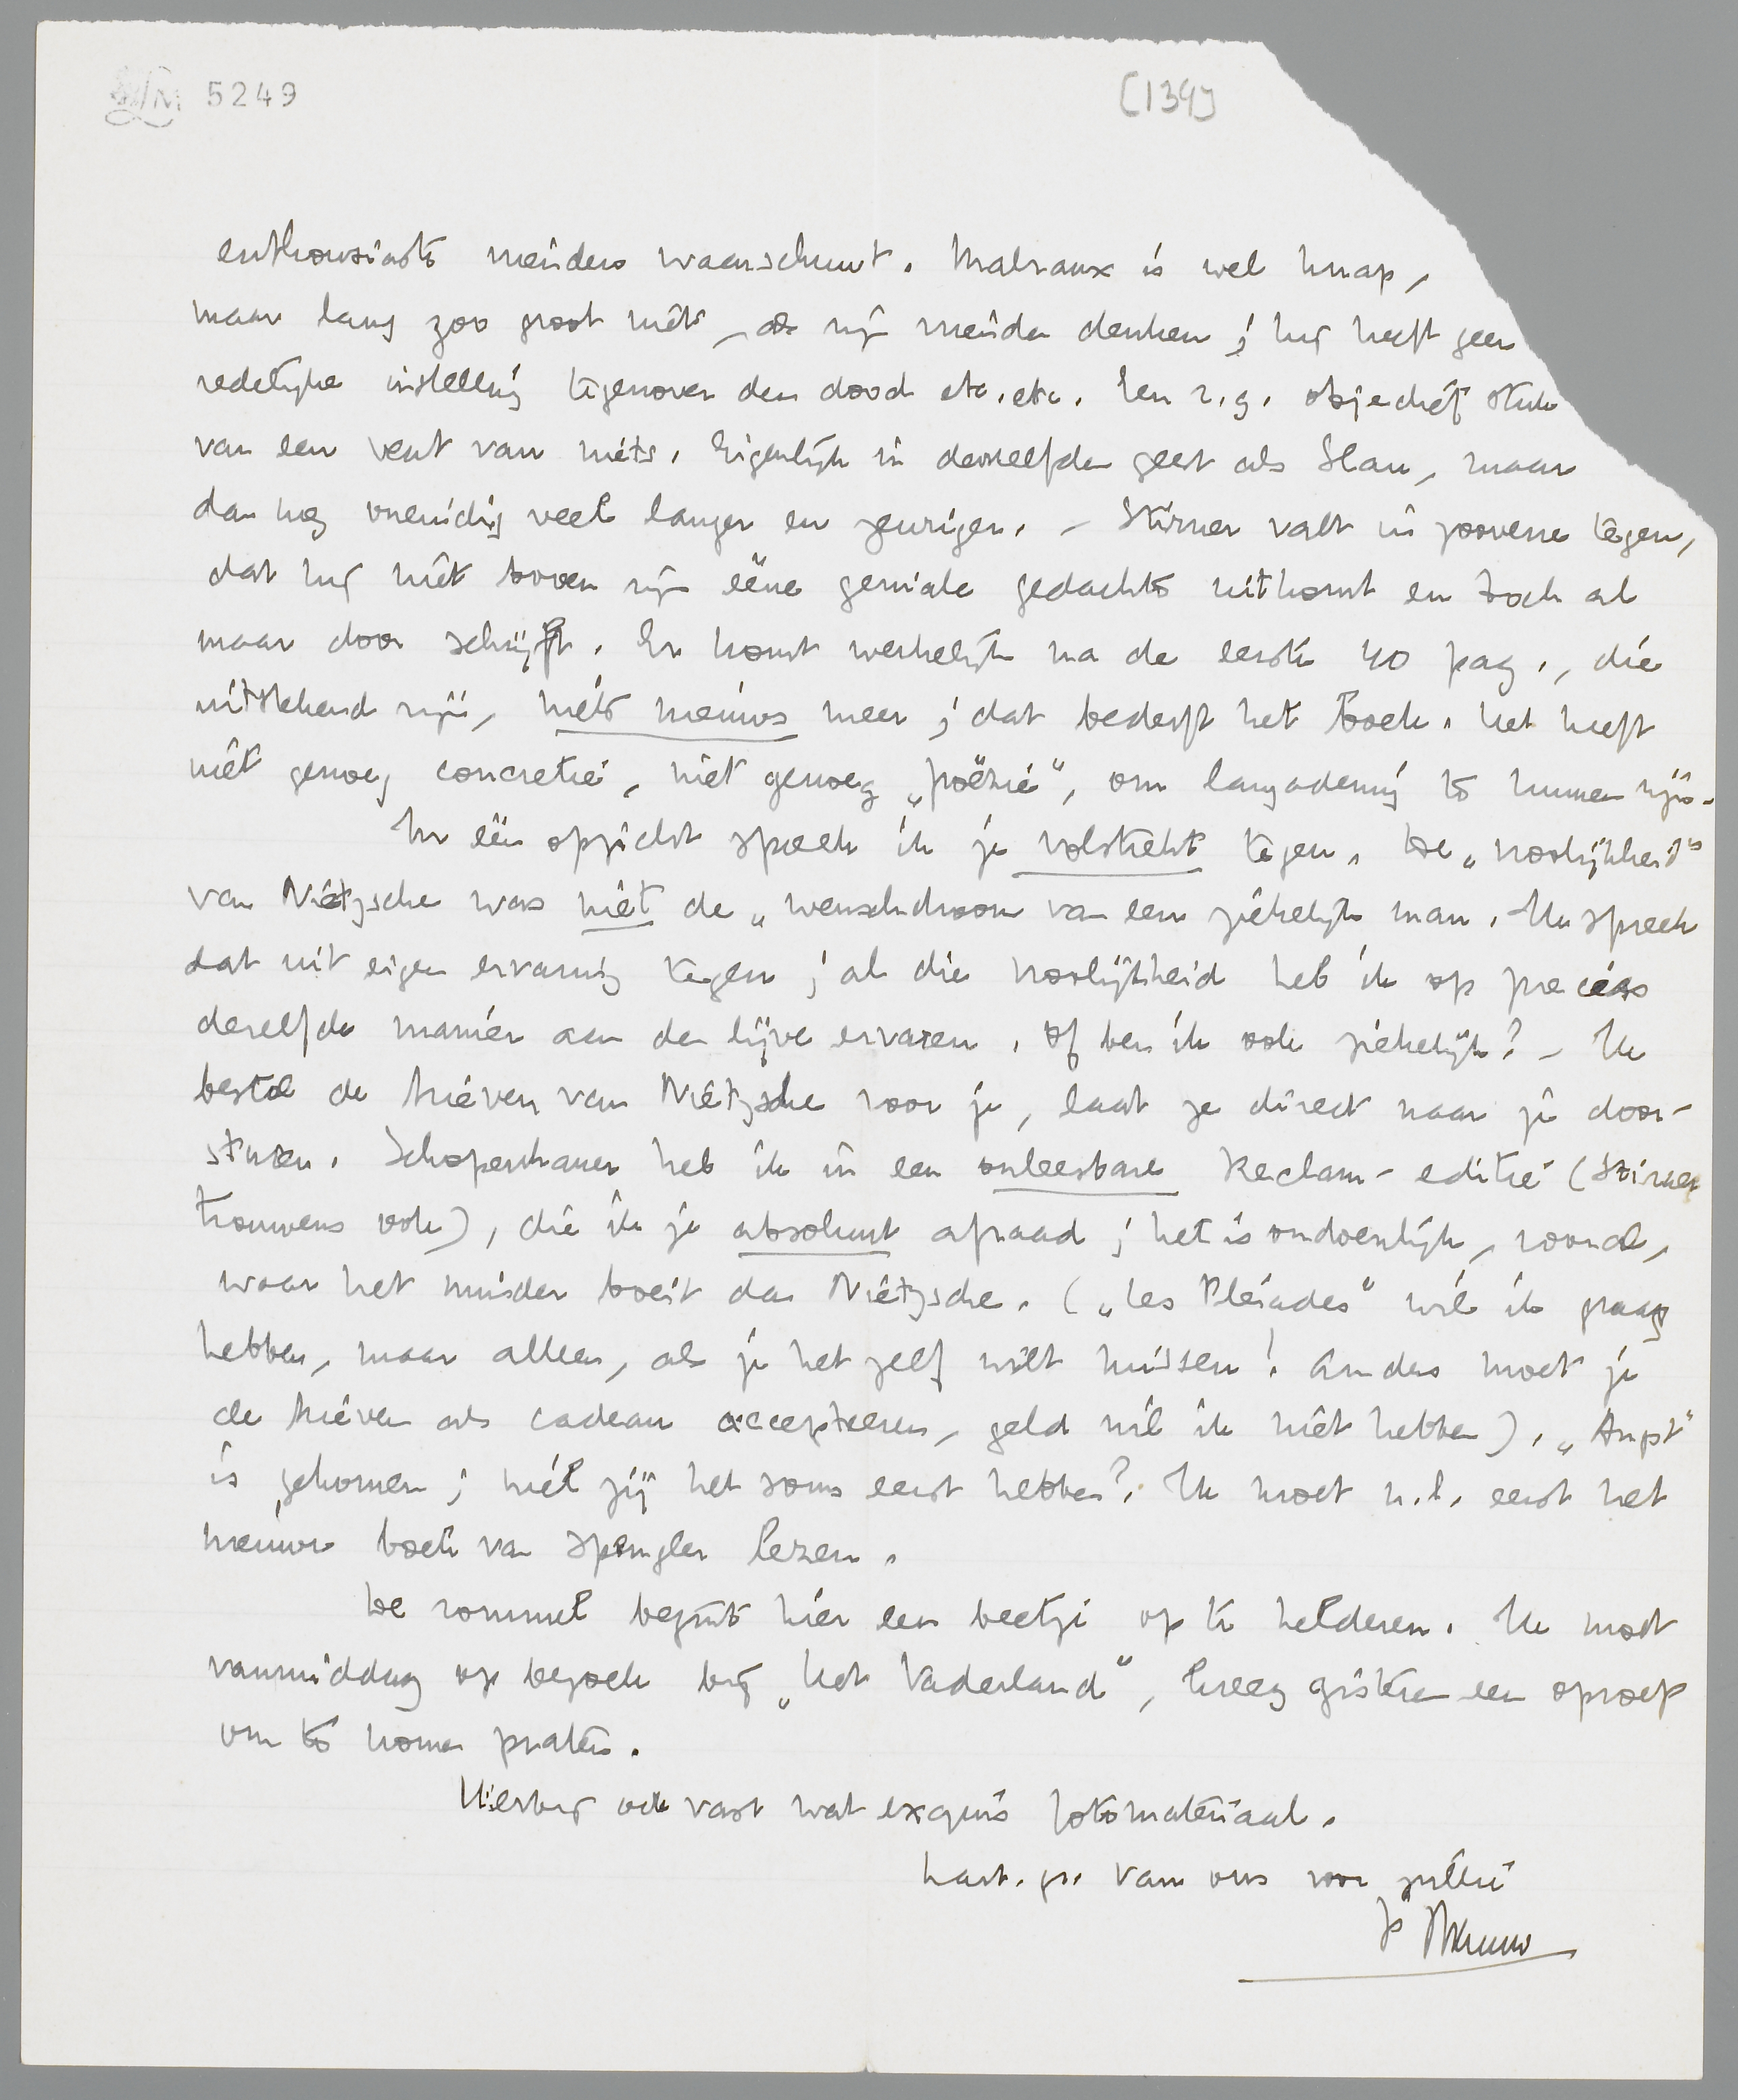 LM 5249
[139]
enthousiaste vrienden waarschuwt. Malraux is wel knap,
maar lang zoo groot niet, als zijn vrienden denken; hij heeft geen
redelijke instelling tegenover den dood etc. etc. Een z.g. objectief stuk
van een vent van niets. Eigenlijk in denzelfden geest als Slau, maar
dan nog oneindig veel langer en zeuriger. - Stirner valt in zooverre tegen,
dat hij niet boven zijn ééne geniale gedachte uitkomt en toch al
maar door schrijft. Er komt werkelijk na de eerste 40 pag., die
uitstekend zijn, niets nieuws meer; dat bederft het boek. Het heeft
niet genoeg concretie, niet genoeg „poëzie", om langademig te kunnen zijn.
In één opzicht spreek ik je volstrekt tegen. De „vroolijkheid"
van Nietzsche was niet de „wenschdroom van een ziekelijk man. Ik spreek
dat uit eigen ervaring tegen; al die vroolijkheid heb ik op precies
dezelfde manier aan den lijve ervaren. Of ben ik ook ziekelijk? - Ik
bestel de brieven van Nietzsche voor je, laat ze direct naar je door-
sturen. Schopenhauer heb ik in een onleesbare Reclam-editie (Stirner
trouwens ook), die ik je absoluut afraad; het is ondoenlijk, vooral,
waar het minder boeit dan Nietzsche. („Les Pléiades" wil ik graag
hebben, maar alleen, als je het zelf wilt missen! Anders moet je
de brieven als cadeau accepteeren, geld wil ik niet hebben). „Angst"
is gekomen; wil jij het soms eerst hebben? Ik moet n.l. eerst het
nieuwe boek van Spengler lezen.
De rommel begint hier een beetje op te helderen. Ik moet
vanmiddag op bezoek bij „Het Vaderland", kreeg gisteren een oproep
om te komen praten.
Hierbij ook vast wat exquis fotomateriaal.
hart. gr. van ons voor jullie
je Menno